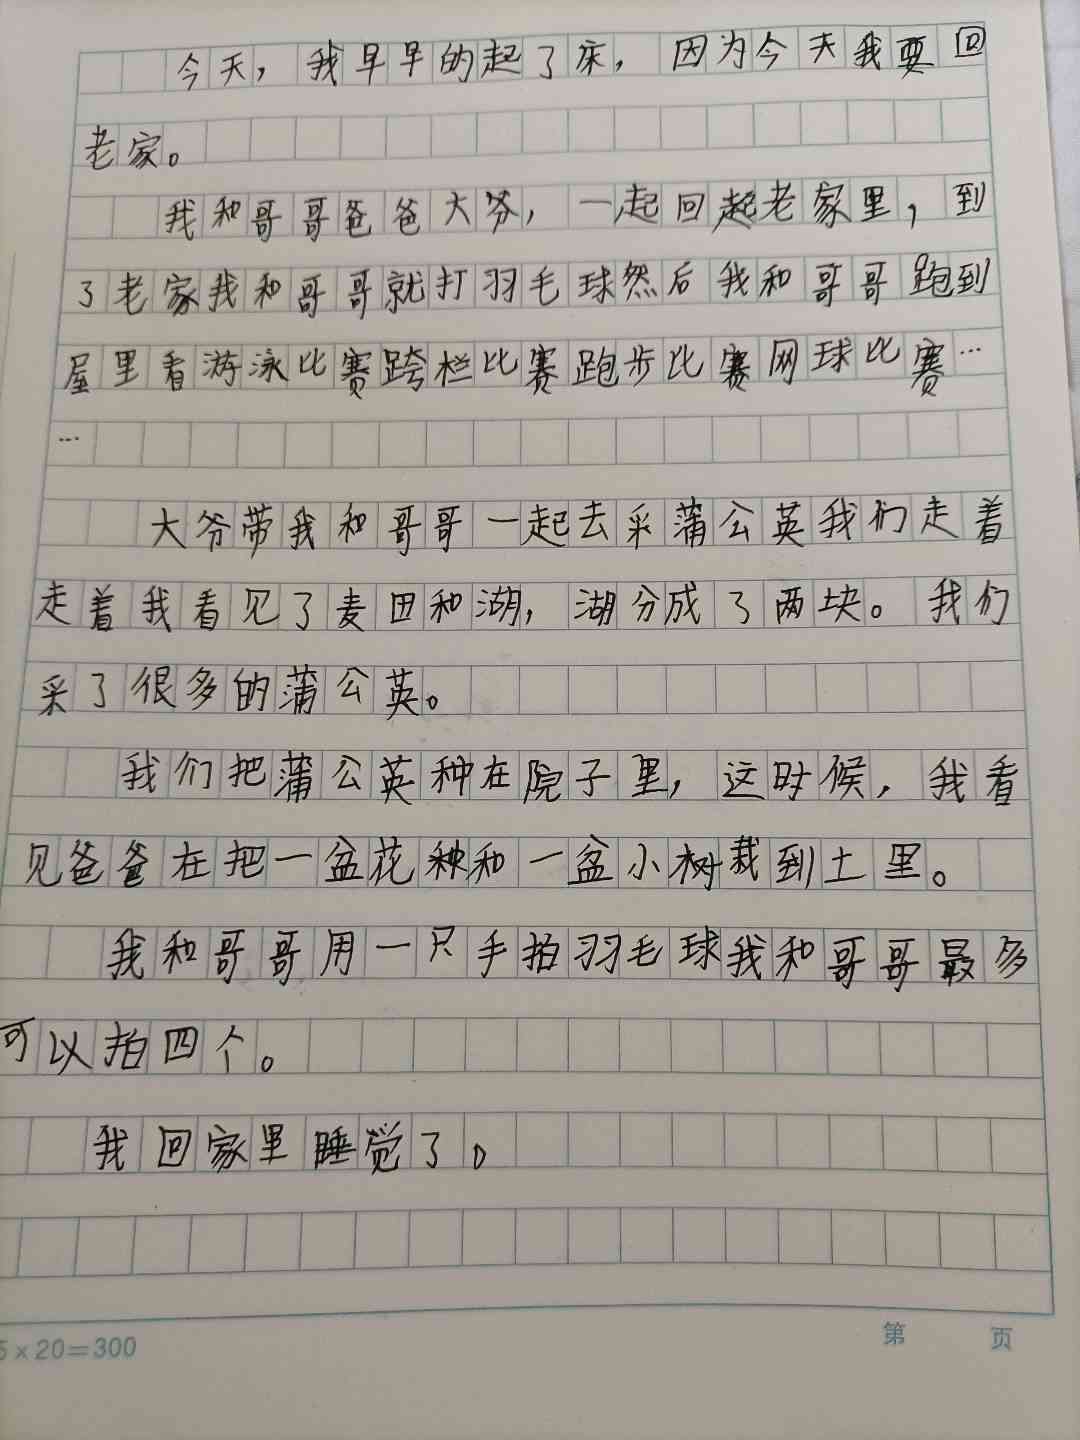 今天，我早早的起了床，因为今天我要回
老家。
我和哥哥爸爸大爷，一起回起老家里，到
了老家我和哥哥就打羽毛球然后我和哥哥跑到
屋里看游泳比赛跨栏比赛跑步比赛网球比赛…
…
大爷带我和哥哥一起去采蒲公英我们走着
走着我看见了麦田和湖，湖分成了两块。我们
采了很多的蒲公英。
我们把蒲公英种在院子里，这时候，我看
见爸爸在把一盆花种和一盆小树栽到土里。
我和哥哥用一只手拍羽毛球我和哥哥最多
可以拍四个。
我回家里睡觉了。
5×20=300
第 页